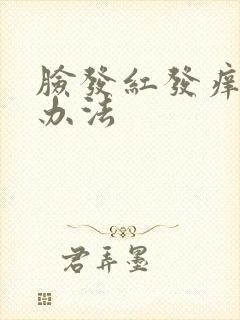 臉發紅發痒
办法
君弄墨